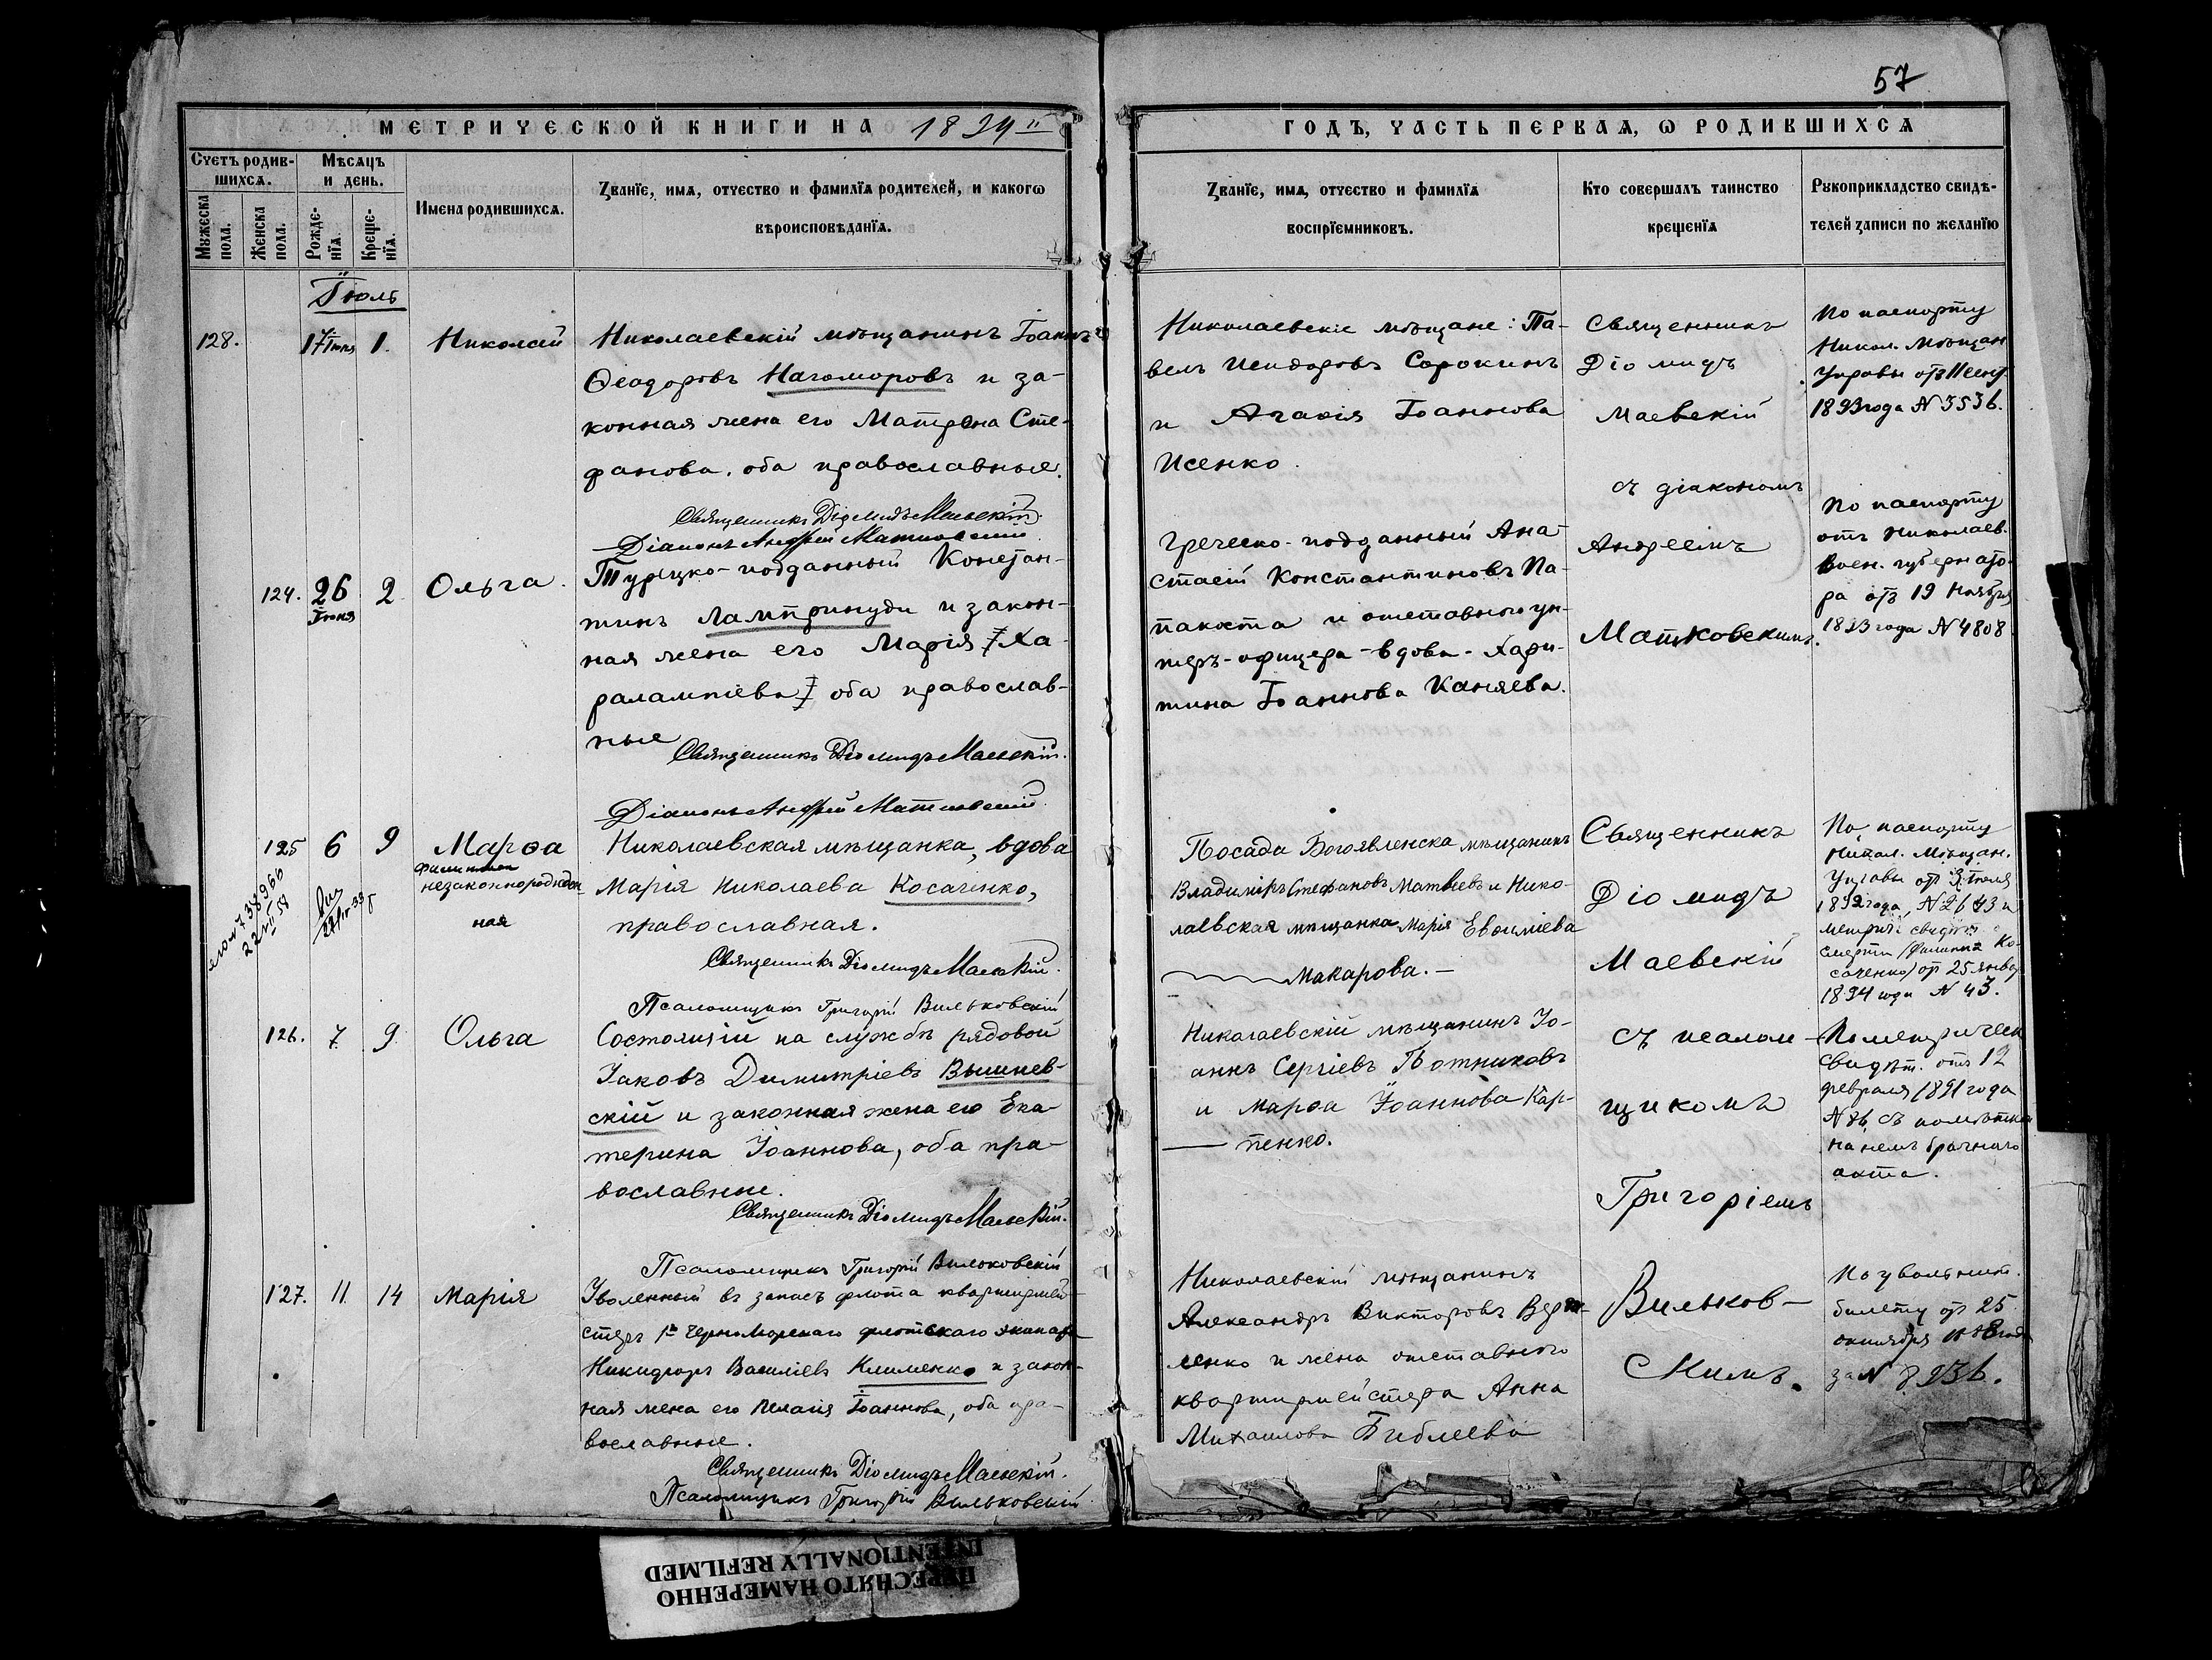 57
МЕТРИЧЕСКОЙ КНИГИ НА 1894й
ГОДЪ, ЧАСТЬ ПЕРВАЯ, Ѡ РОДИВШИХСЯ
Счетъ родив-
шихся.
Мѣсяцъ
и день.
Мужеска
пола.
Женска
пола.
Рожде-
нїя.
Креще-
нїя.
Имена родившихся.
Званїе, имя, отчество и фамилїя родителей, и какогѡ
вѣроисповѣданїя.
Званїе, имя, отчество и фамилїя
воспрїемниковъ.
Кто совершалъ таинство
крещенїя
Рукоприкладство свидѣ-
телей записи по желанїю
Іюль
128. 17 Іюня 1. Николай
Николаевскій мѣщанинъ Іоаннъ
Ѳеодоровъ Нагоморовъ и за-
конная жена его Матрона Сте-
фанова, оба православные.
Священникъ Діомидъ Маевскій.
Діаконъ Андрей Матковскій.
Николаевскіе мѣщане: Па-
велъ Исидоровъ Сорокинъ
и Агафія Іоаннова
Исенко.
Священникъ
Діомидъ
Маевскій
съ діакономъ
Андреемъ
Матковскимъ.
По паспорту
Никол. Мѣщан.
Управы отъ 11 сент.
1893 года N 3536.
124. 26 Іюня 2 Ольга.
Турецко-подданный Констан-
тинъ Лампринуди и закон-
ная жена его Марія Ха-
ралампіева, оба православ-
ные
Священникъ Діомидъ Маевскій.
Діаконъ Андрей Матковскій.
Греческо-подданный Ана-
стасій Константиновъ Па-
пакоста и отставного ун-
теръ-офицера-вдова-Хари-
тина Іоаннова Каняева.
По паспорту
отъ Николаев.
Воен. губернато-
ра отъ 19 Ноября
1893 года N 4808
125 6 9 Марѳа
незаконнорожден-
ная
738966
22 VII 58
Николаевская мѣщанка, вдова
Марія Николаева Косаченко,
православная.
Священникъ Діомидъ Маевскій.
Псаломщикъ Григорій Вильковскій
Посада Богоявленска мѣщанинъ
Владиміръ Стефановъ Матвѣевъ и Нико-
лаевская мѣщанка Марія Евѳиміева
Макарова.-
Священникъ
Діомидъ
Маевскій
съ псалом-
щикомъ
Григоріемъ
Вильков-
скимъ.
По паспорту
Никол. Мѣщан.
Управы отъ 3 Іюля
1892 года, N 2643 и
метрич. свидѣт. о
смерти (Филиппа Ко-
саченко) отъ 25 январ.
1894 года N 43.
126. 7. 9. Ольга
Состоящій на службѣ рядовой
Іаковъ Димитріевъ Вышнев-
скій и законная жена его Ека-
терина Іоаннова, оба пра-
вославные.
Священникъ Діомидъ Маевскій.
Псаломщикъ Григорій Вильковскій
Николаевскій мѣщанинъ Іо-
аннъ Сергіевъ Ботниковъ
и Марѳа Іоаннова Кар-
пенко.
По метрическ.
свидѣт. отъ 12
февраля 1891 года
N 86, съ помѣткой
на немъ брачнаго
акта.
127. 11. 14 Марія
Уволенный въ запасъ флота квартирмей-
стеръ 1го Черноморскаго флотскаго экипажа
Никифоръ Василіевъ Клименко и закон-
ная жена его Пелагія Іоаннова, оба пра-
вославные.
Священникъ Діомидъ Маевскій.
Псаломщикъ Григорій Вильковскій
Николаевскій мѣщанинъ
Александръ Викторовъ
и жена отставного
квартирмейстера Анна
Михаилова Библеева
По увольнит.
билету отъ 25
октября
за N 8936.
ПЕРЕСНЯТО НАМЕРЕННО
INTENTIONALLY REFILMED